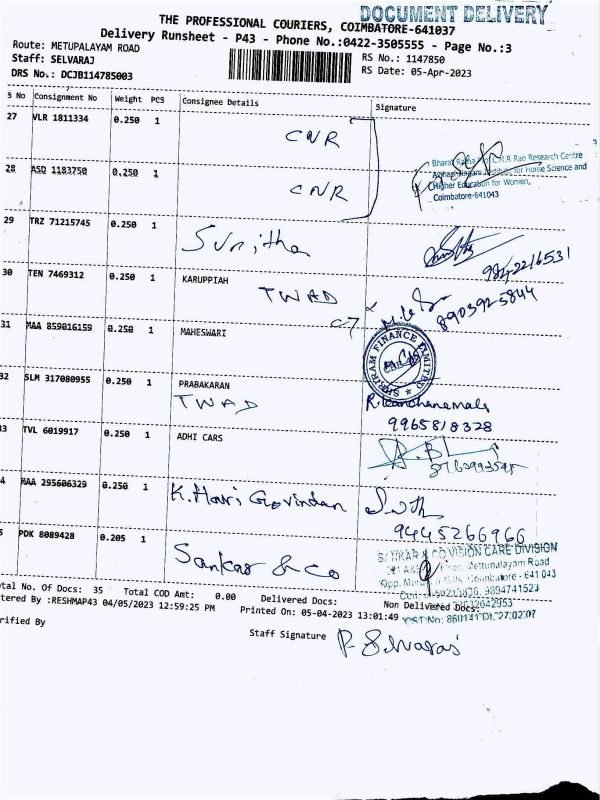 DOCUMENT DELIVERY
THE PROFESSIONAL COURIERS, COIMBATORE-641037
Delivery Runsheet - P43 - Phone No.:0422-3505555 - Page No.:3
Route: METUPALAYAM ROAD
Staff: SELVARAJ
DRS No.: DCJB114785003
RS No.: 1147850
RS Date: 05-Apr-2023
S No Consignment No Weight PCS Consignee Details Signature
27 VLR 1811334 0.250 1 CNR
Bharat Ratna Prof. C.N.R Rao Research Centre
28 ASD 1183750 0.250 1 CNR
Avinashilingam Institute for Home Science and
Higher Education for Women,
Coimbatore-641043
29 TRZ 71215745 0.250 1
Sunitha
9842216531
30 TEN 7469312 0.250 1 KARUPPIAH
TWAD
8903925844
31 MAA 859016159 0.250 1 MAHESWARI
SHRIRAM FINANCE LIMITED
32 SLM 317080955 0.250 1 PRABAKARAN
TWAD
R.Kanchanamala
9965818328
33 TVL 6019917 0.250 1 ADHI CARS
4 MAA 295606329 0.250 1 K.Hari Govindan
9445266966
5 PDK 8089428 0.205 1
Sankar & Co
SANKAR & CO VISION CARE DIVISION
Mettupalayam Road
Opp. Mills, Coimbatore - 641 043
9894741523
otal No. Of Docs: 35 Total COD Amt: 0.00 Delivered Docs: Non Delivered Docs:
tered By :RESHMAP43 04/05/2023 12:59:25 PM Printed On: 05-04-2023 13:01:49
rified By
Staff Signature P. Selvaraj